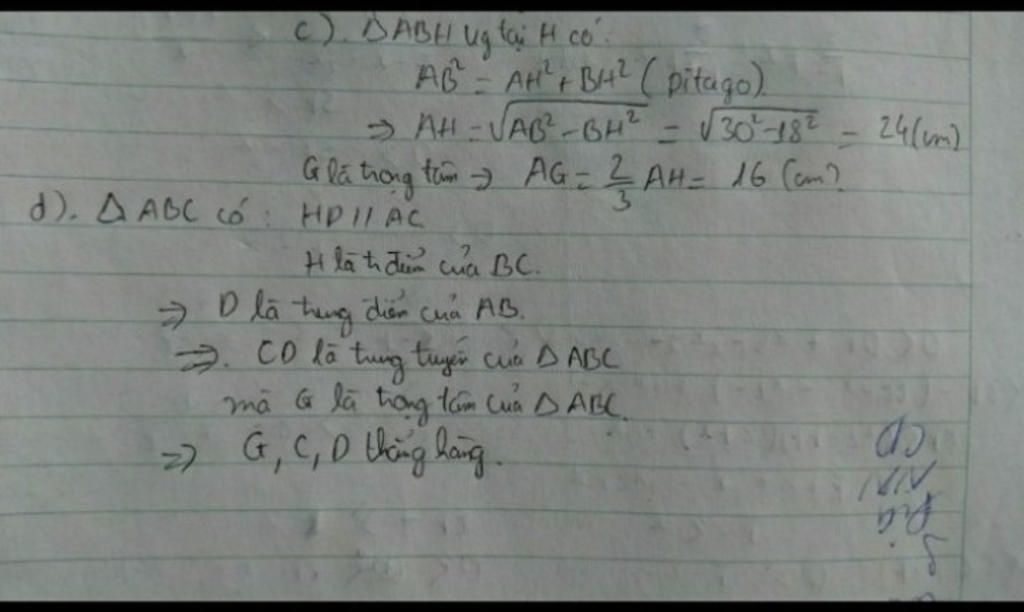 c). ΔABH vg tại H có:
AB² = AH² + BH² (pitago)
=> AH = √AB² - BH² = √30² - 18² = 24 (cm)
G là trọng tâm => AG = 2/3 AH = 16 (cm)
d). Δ ABC có: HD // AC
H là tr điểm của BC.
=> D là trung điểm của AB.
=>. CD là trung tuyến của Δ ABC
mà G là trọng tâm của Δ ABC.
=> G, C, D thẳng hàng.